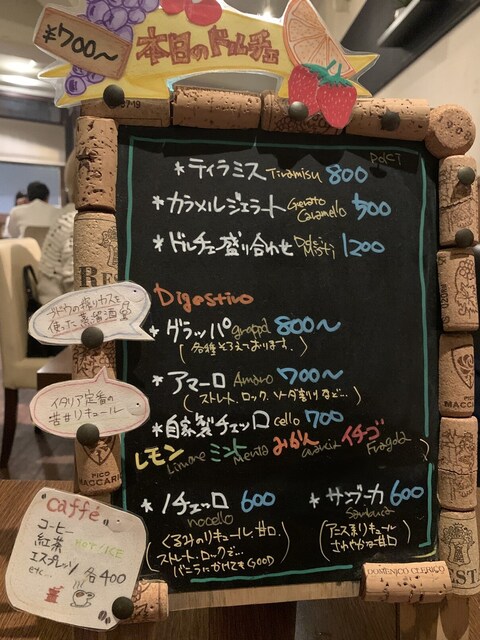 ¥700〜
本日のドルチェ
Dolci
*ティラミス Tiramisu 800
*カラメルジェラート Gerato Caramello 500
*ドルチェ盛り合わせ Dolci Misti 1200
Digestivo
ブドウの搾りカスを
使った蒸留酒
*グラッパ grappa 800〜
(各種そろえております。)
イタリア定番の
苦甘リキュール
*アマーロ Amaro 700〜
(ストレート、ロック、ソーダ割りなど…)
*自家製チェッロ cello 700
レモン Limone ミント Menta みかん arancia イチゴ Fragola
*ノチェッロ 600
nocello
(くるみのリキュール。甘口。
ストレート、ロックで…
バニラにかけてもGOOD)
*サンブーカ 600
Sambuca
(アニス系リキュール
さわやかな甘口)
caffé
コーヒー
紅茶 HOT/ICE
エスプレッソ
etc… 各400
PICO
MACCARI
DOMENICO CLERICO